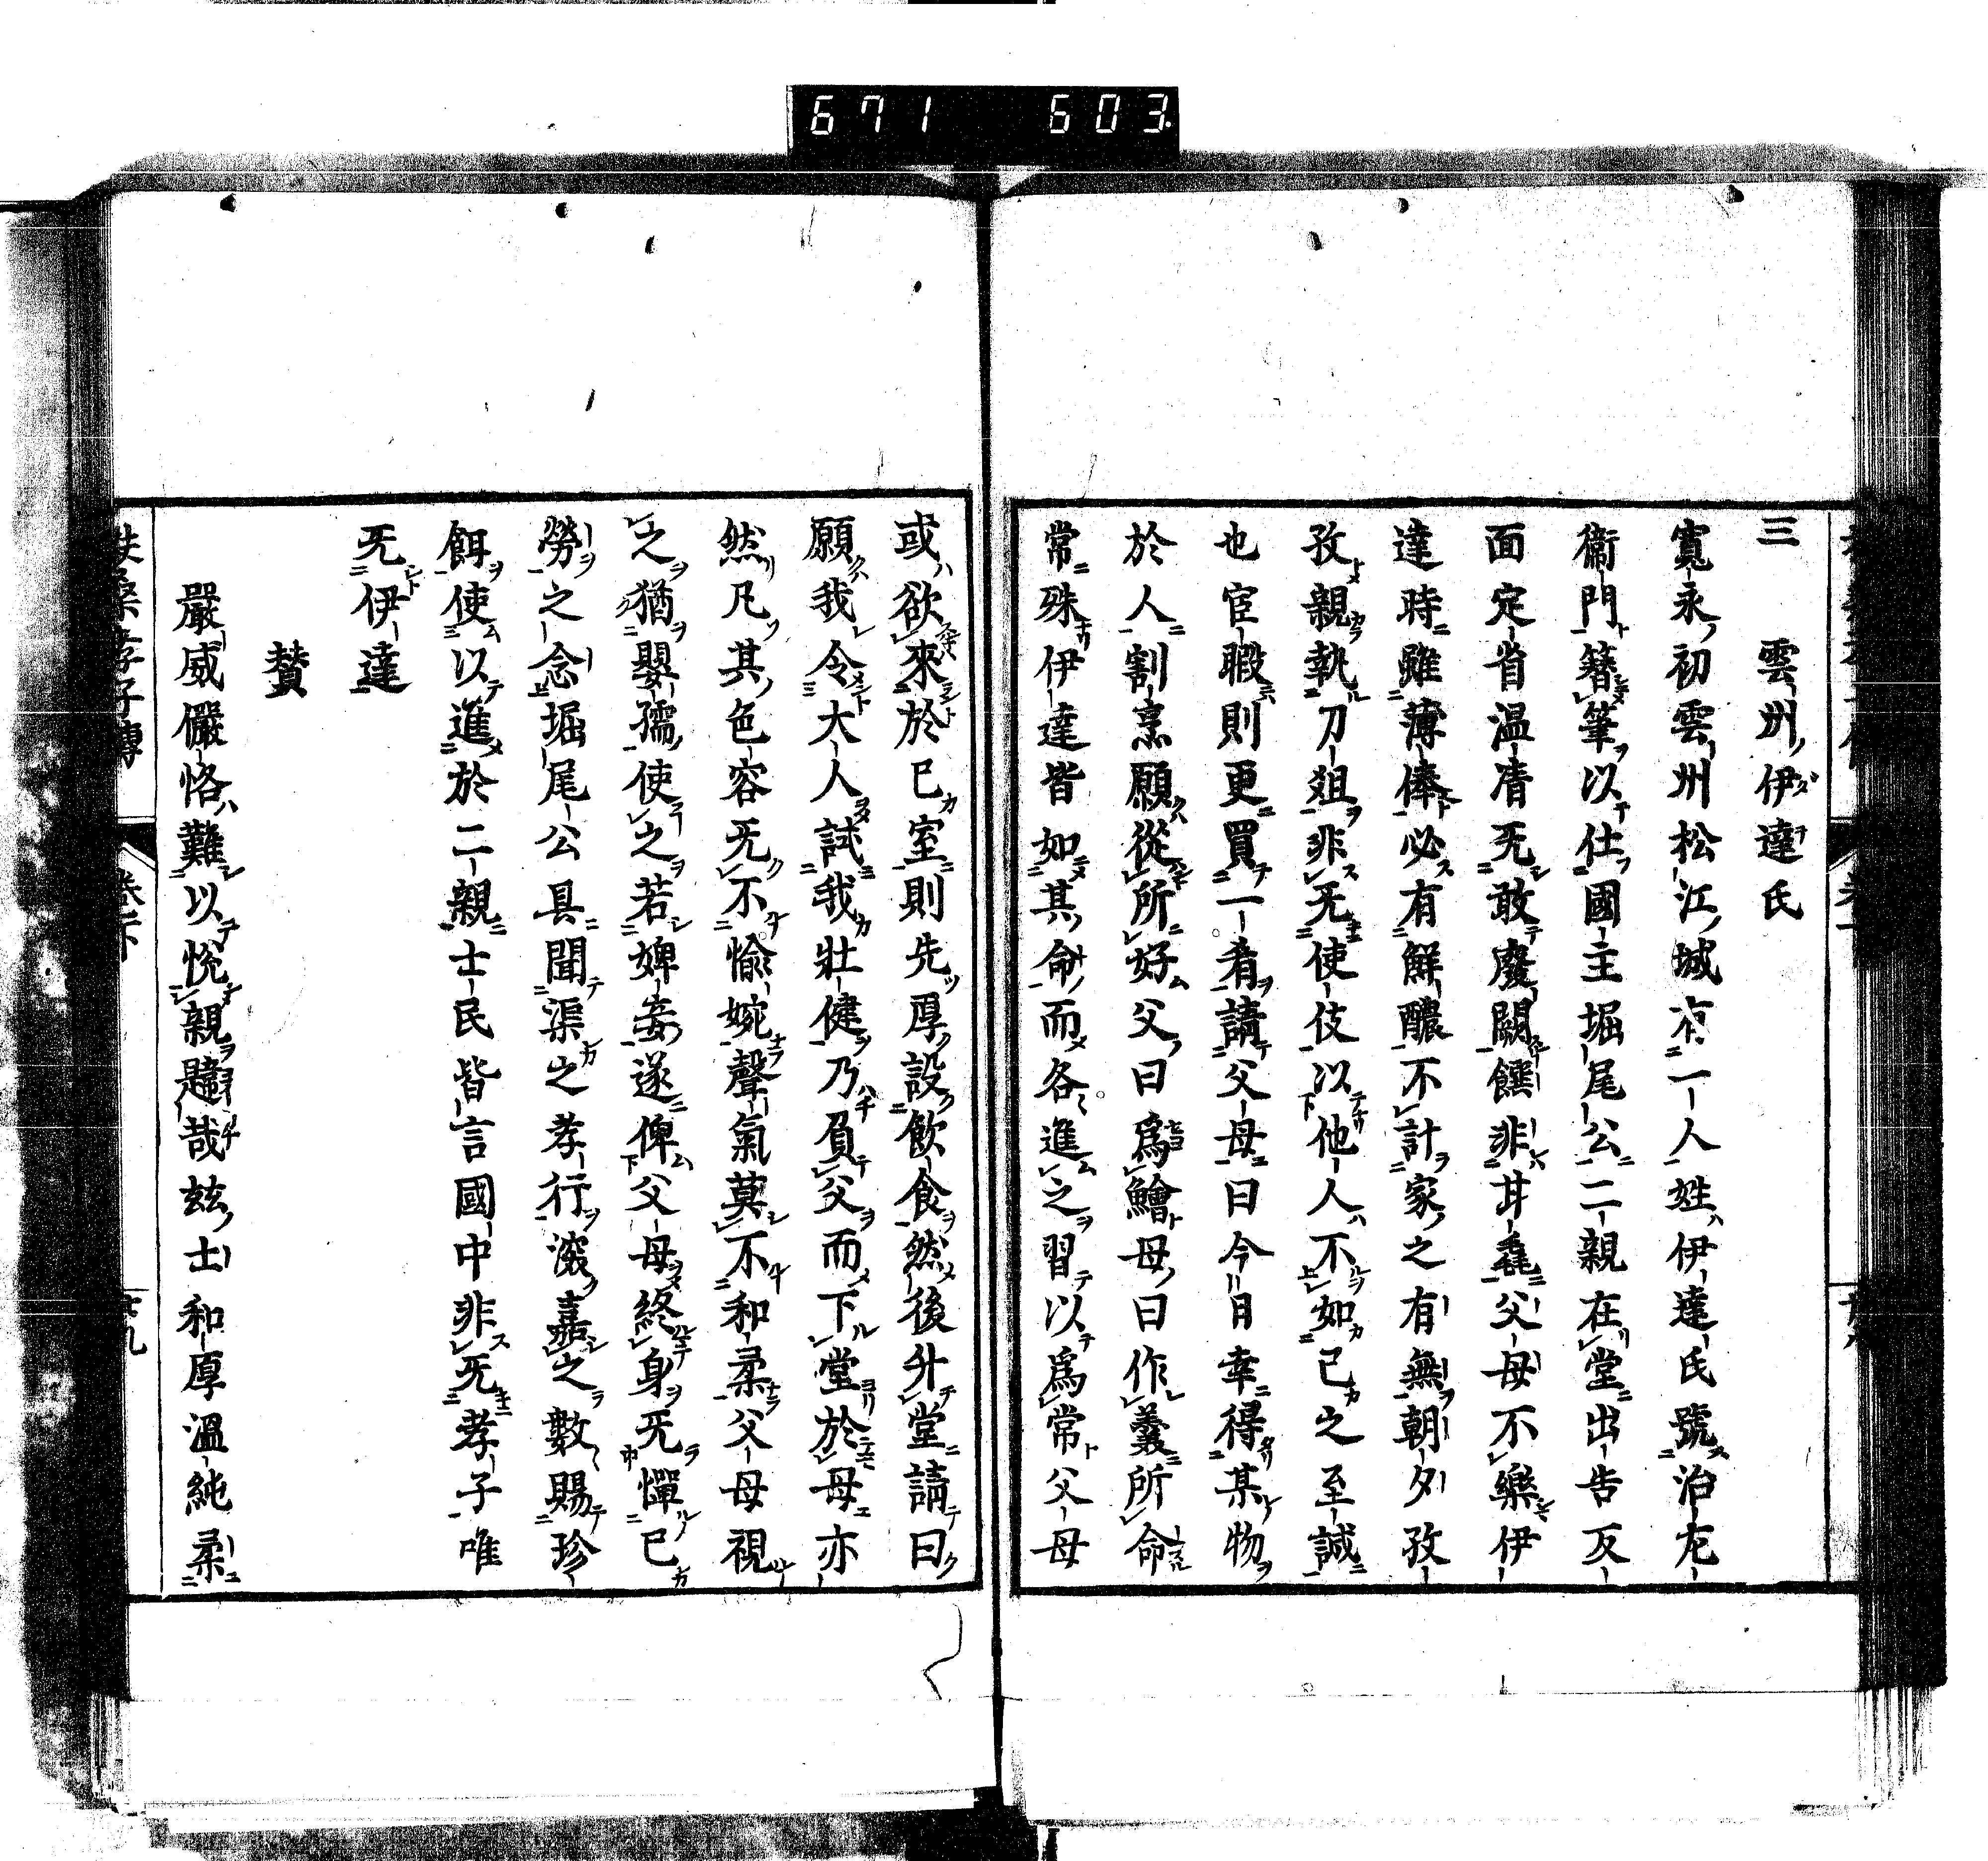 671 603
三 雲州伊達氏
寬永初雲州松江城有一人姓伊達氏號治左
衞門簪筆以仕國主堀尾公二親在堂出告反
面定省温凊旡敢廢闕饌非甘毳父母不樂伊
達時雖薄俸必有鮮醲不計家之有無朝夕孜
孜親執刀俎非旡使伎以他人不如己之至誠
也官暇則更買一肴請父母曰今日幸得某物
於人割烹願從所好父曰爲鱠母曰作羹所命
常殊伊達皆如其命而各進之習以爲常父母
或欲來於已室則先厚設飲食然後升堂請曰
願我令大人試我壯健乃負父而下堂於母亦
然凡其色容旡不愉婉聲氣莫不和柔父母視
之猶嬰孺使之若婢妾遂俾父母終身旡憚已
勞之念堀尾公具聞渠之孝行滚嘉之數賜珍
餌使以進於二親士民皆言國中非旡孝子唯
旡伊達
賛
嚴威儼恪難以悅親韙哉玆士和厚溫純柔